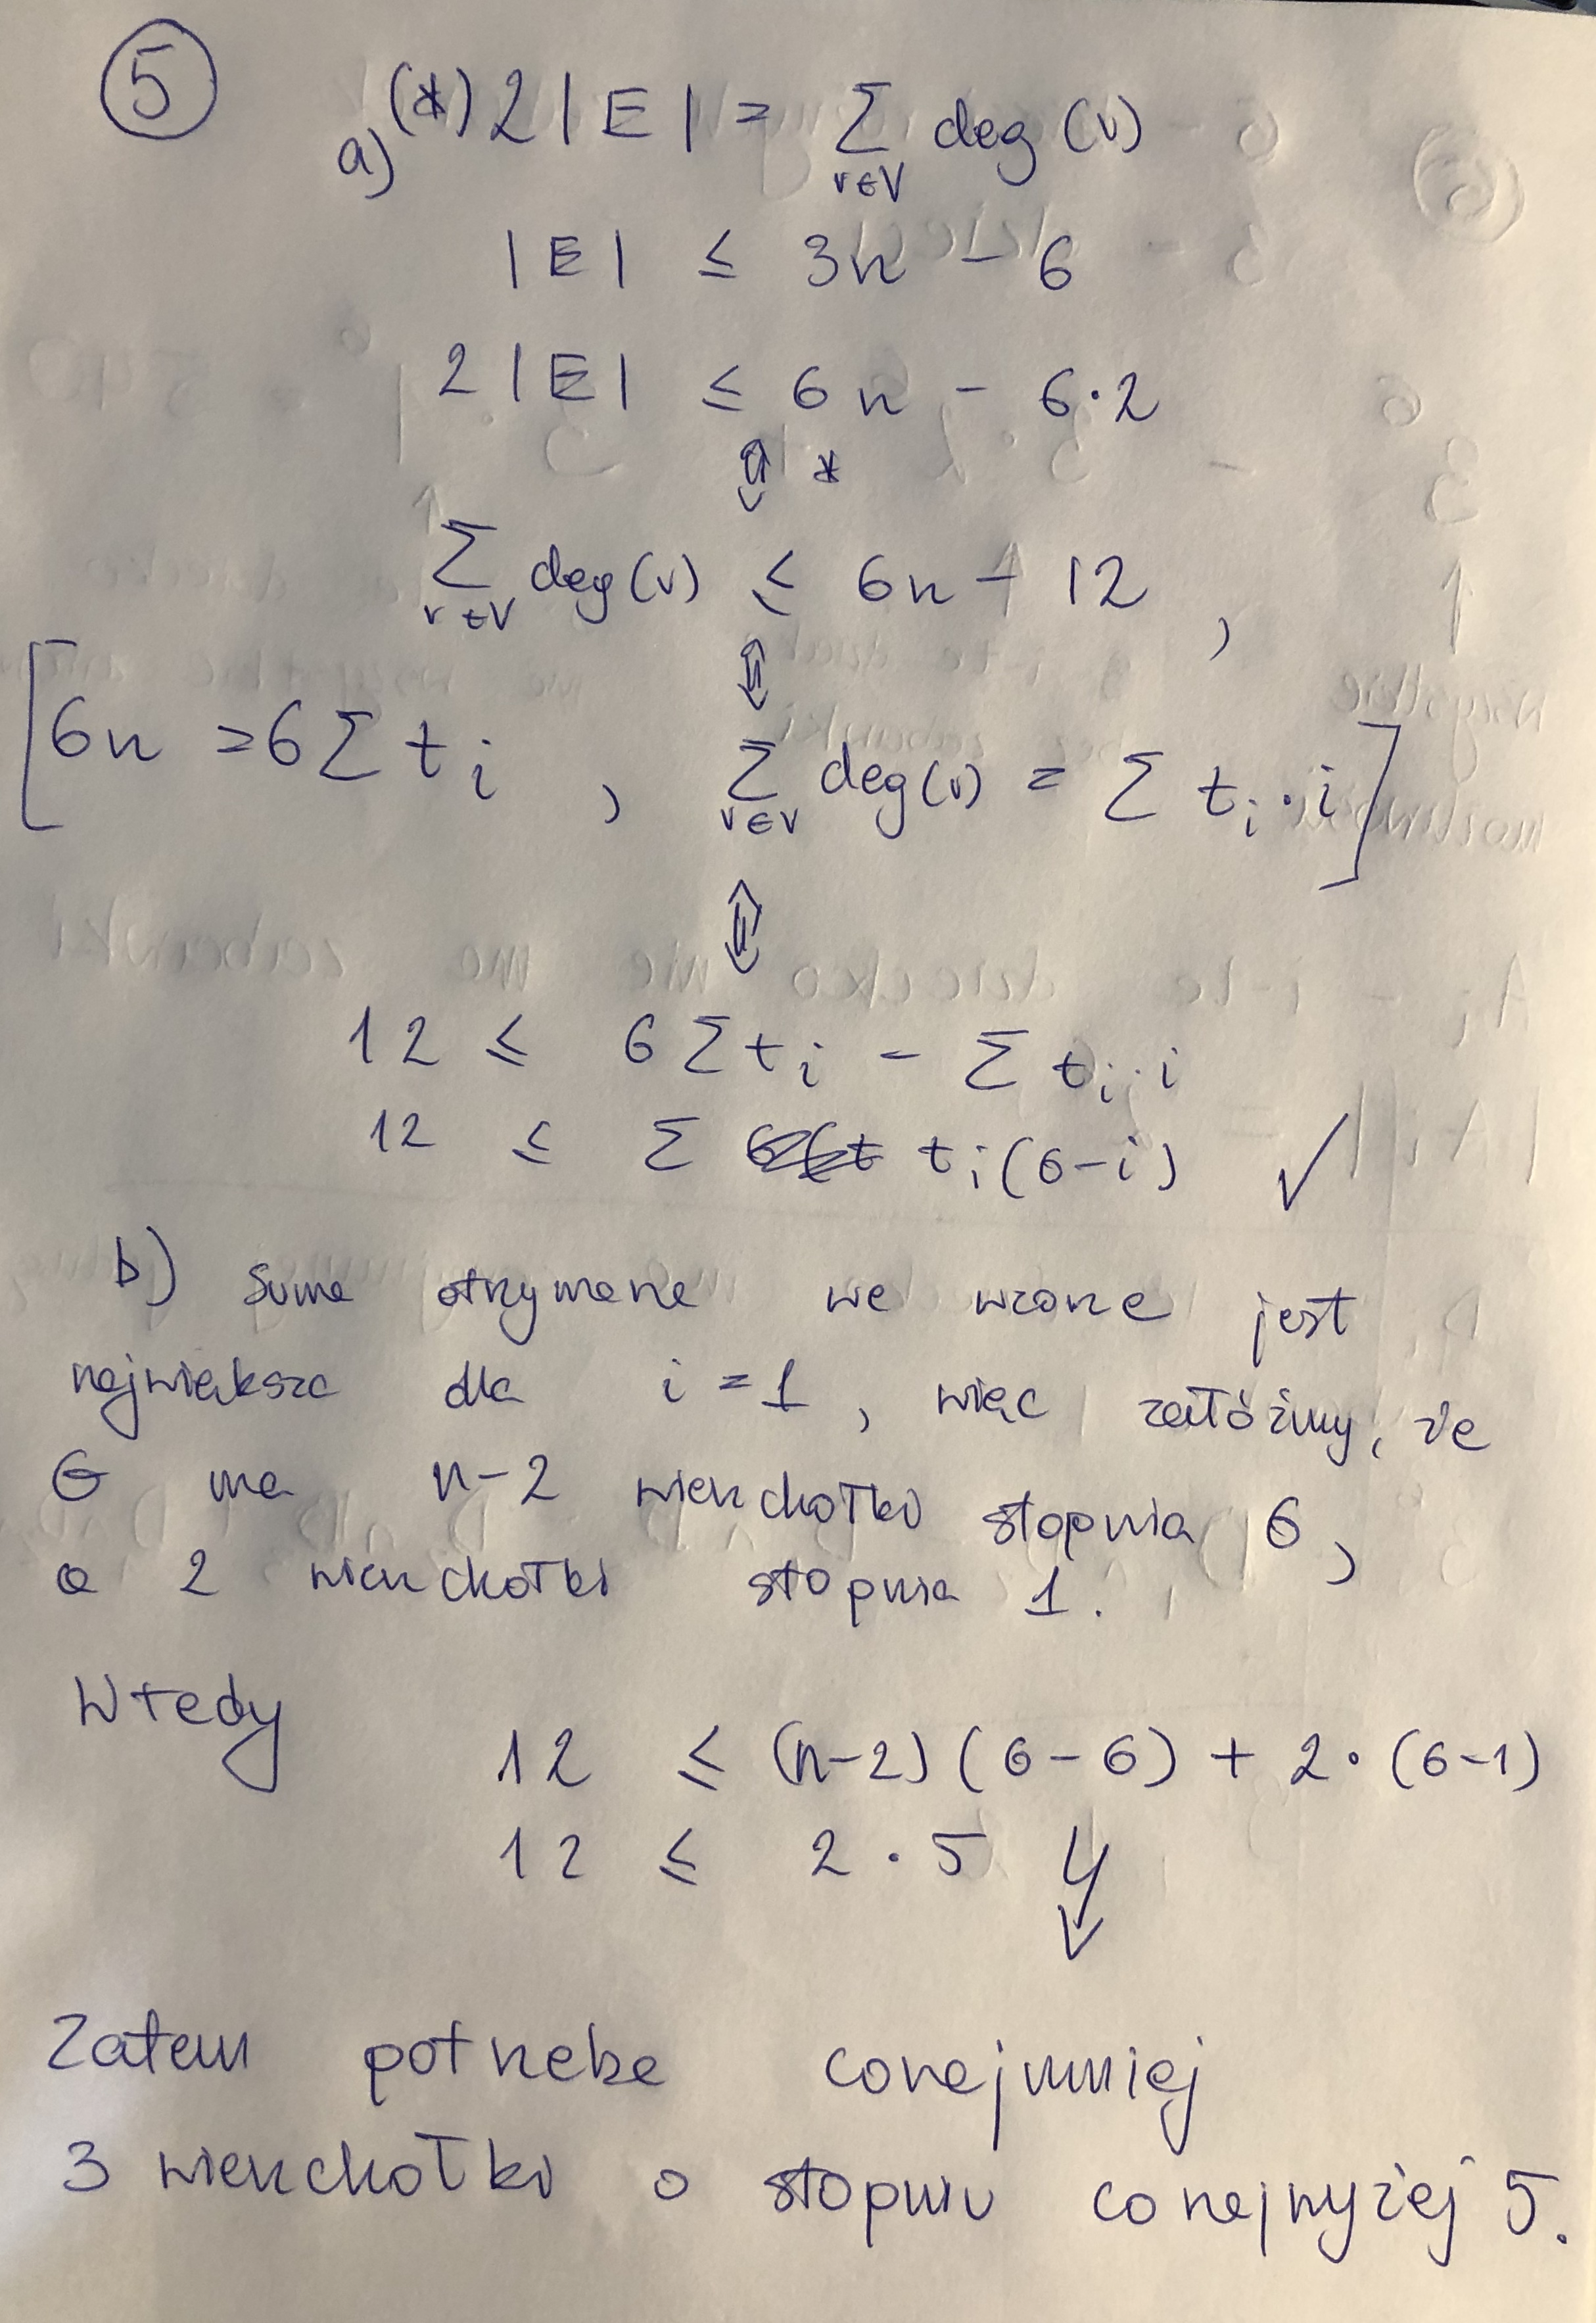 5
a) (*) 2|E| = Σ deg(v)
v∈V
|E| ≤ 3n - 6
2|E| ≤ 6n - 6·2
⇕ *
Σ deg(v) ≤ 6n - 12 ,
v∈V
⇕
[6n = 6Σ t_i , Σ deg(v) = Σ t_i · i]
v∈V
⇕
12 ≤ 6Σt_i - Σ t_i · i
12 ≤ Σ t_i(6-i) ✓
b) Suma otrzymana we wzorze jest
największa dla i = 1, więc załóżmy, że
G ma n-2 wierzchołki stopnia 6,
a 2 wierzchołki stopnia 1.
Wtedy
12 ≤ (n-2)(6-6) + 2·(6-1)
12 ≤ 2·5 ↯
Zatem potrzeba conajmniej
3 wierzchołki o stopniu conajwyżej 5.